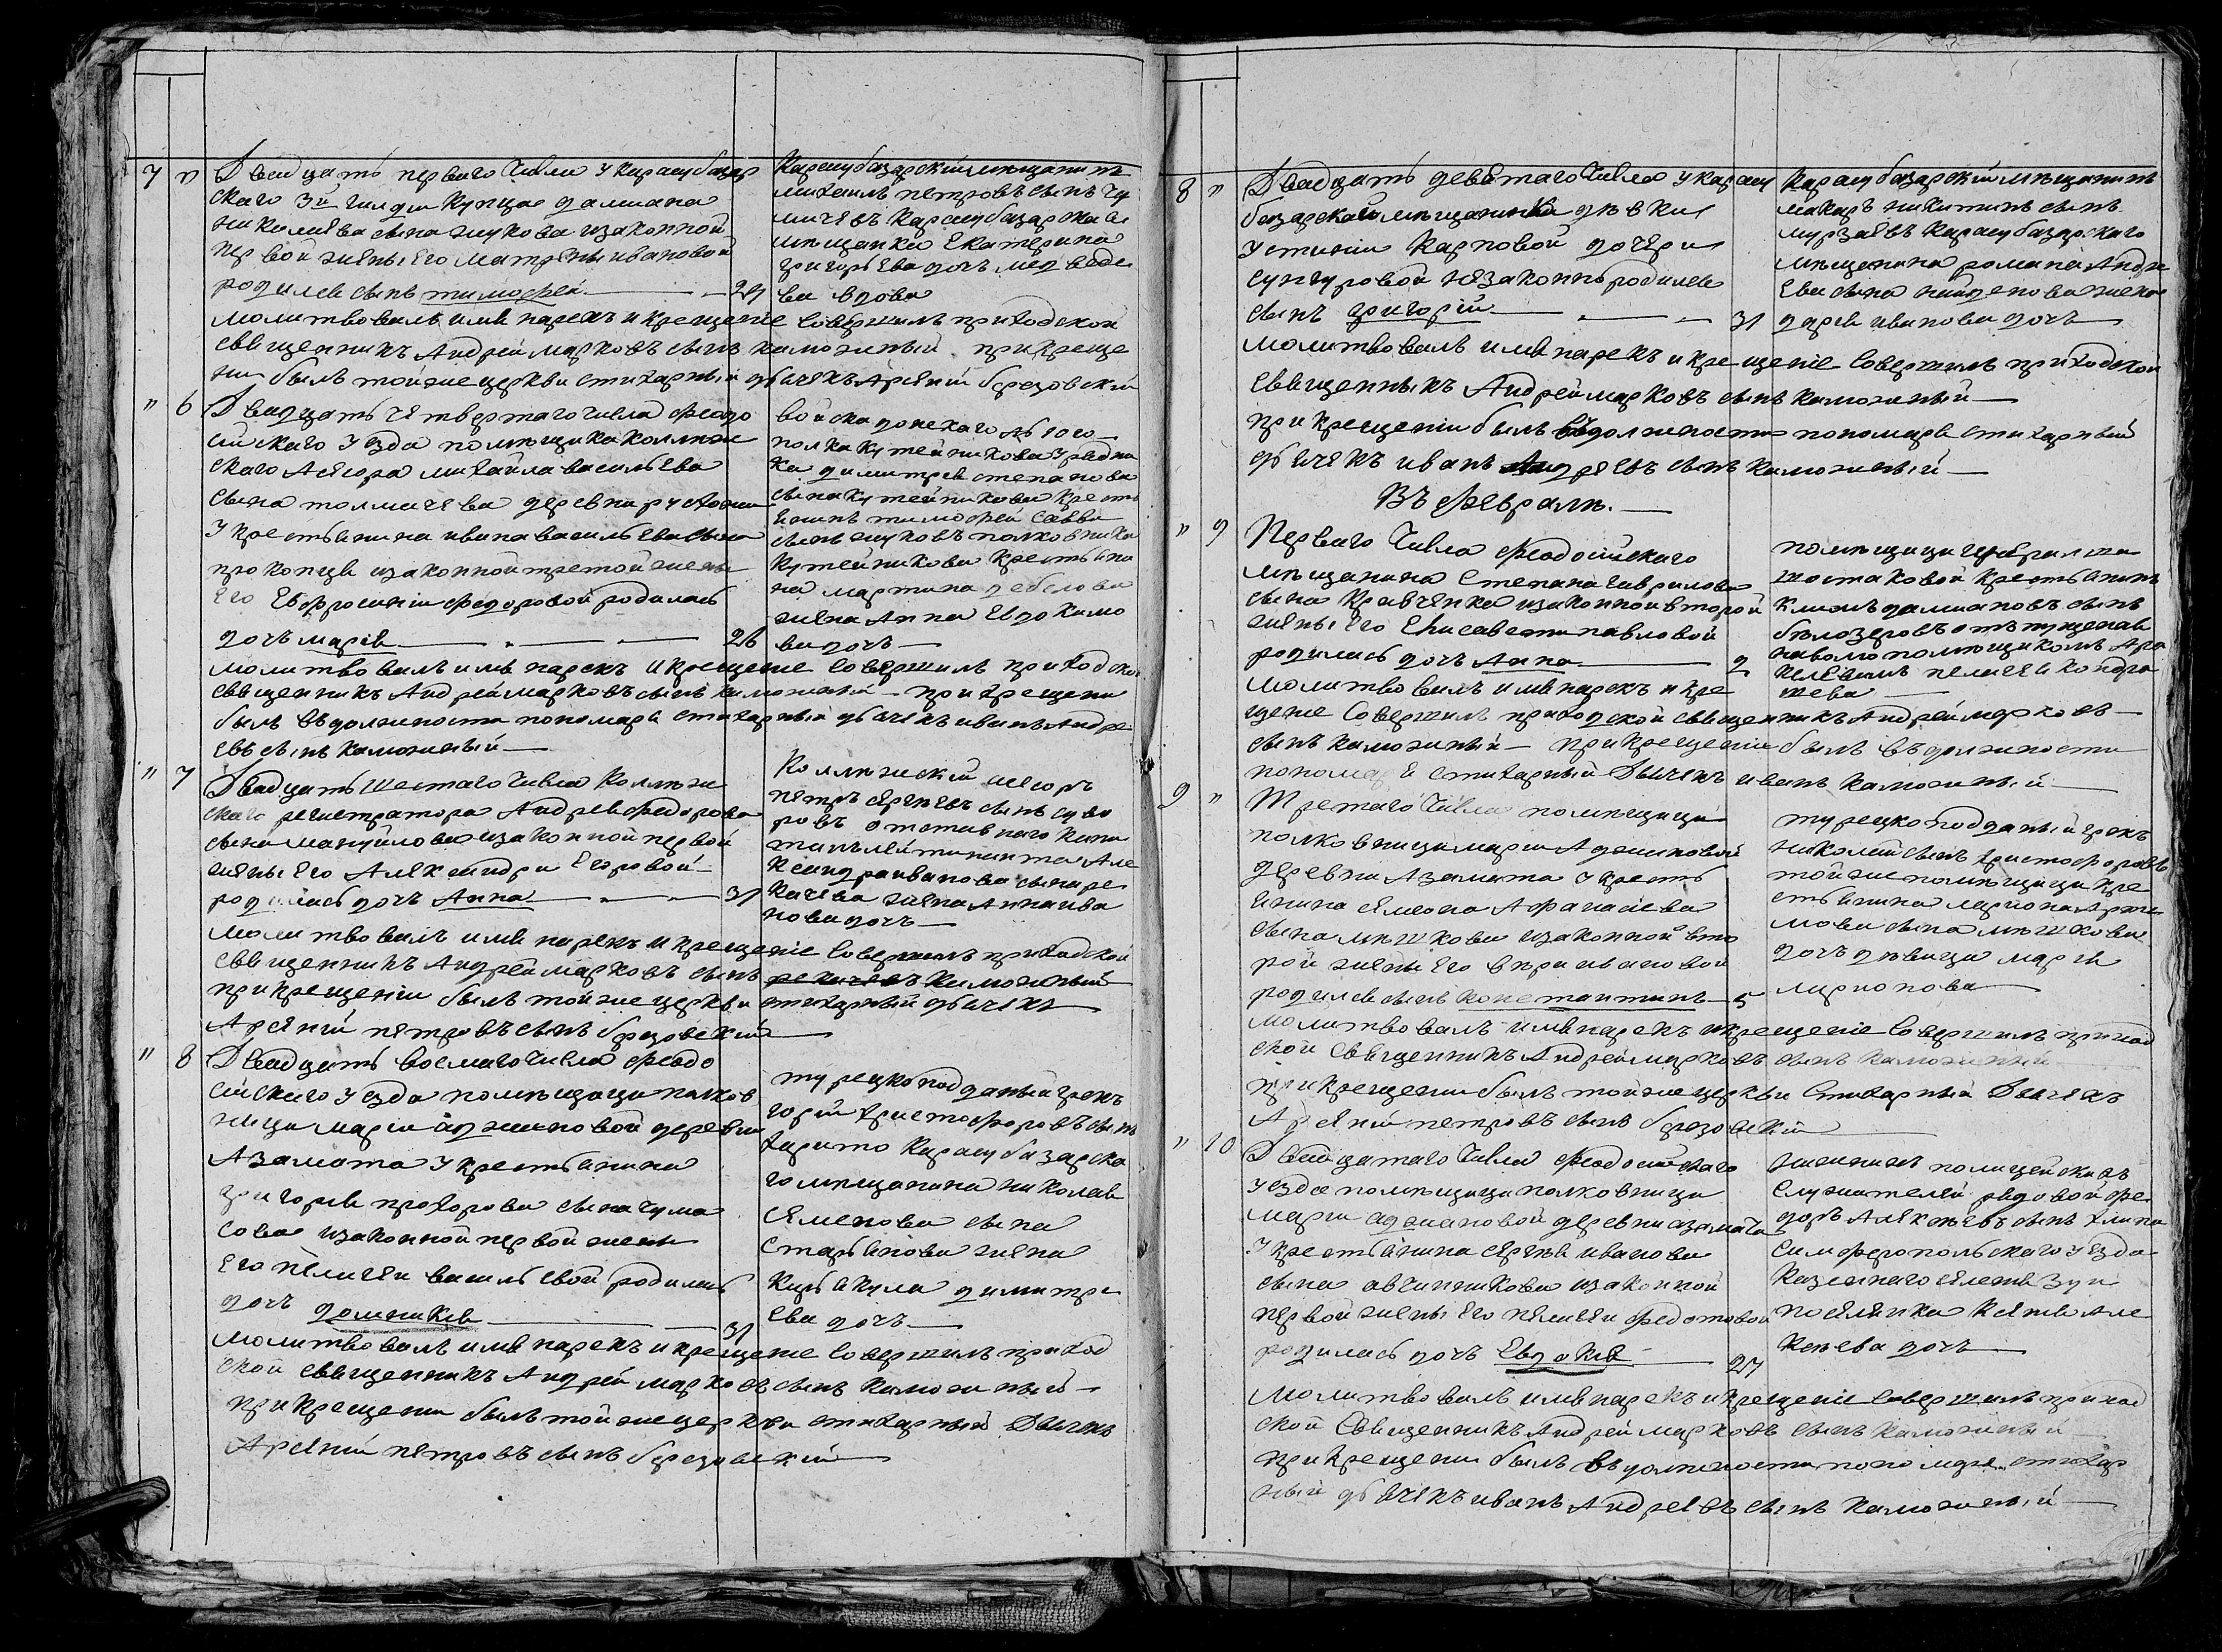 7 "
Двадцать перваго числа у карасубазар
скаго 3й гилдии купца дамиана
николаева сына жукова изаконной
первой жены его матрены ивановой
родился сынъ тимофей 24
Карасубазарскій мещанинъ
михаилъ петровъ сынъ
карасубазарская
мещанка Екатерина
григорьева дочь медведе
ва вдова
молитвовалъ имя нарекъ и крещение совершилъ приходской
священникъ Андрей марковъ сынъ калюжный при креще
нии былъ той же церкви стихарный дьячекъ Арсений березовский
" 6
Двадцать четвертаго числа феодо
сийскаго уезда помещика коллеж
скаго Асесора михайла васильева
сына толмачева деревни
у крестьянина ивана васильева сына
изаконной третой жены
его Евфросинии федоровой родилась
дочь мария 26
войска донскаго
полка кутейникова урядни
ка димитрия степанова
сына кутейникова крестъ
янинъ тимофей савви
сынъ жуковъ полковника
кутейникова крестьяни
на мартина
жена Анна Евдокимо
ва дочь
молитвовалъ имя нарекъ и крещение совершилъ приходской
священникъ Андрей марковъ сынъ калюжный при крещении
былъ въ должности пономаря стихарный дьячекъ иванъ Андре
евъ сынъ калюжный
" 7
Двадцать шестаго числа коллеж
скаго регистратора Андрея федорова
сына мануйлова изаконной первой
жены его Александры Егоровой
родилась дочь Анна 31
Коллежский асесоръ
петръ сергеевъ сынъ суво
ровъ отставного капи
танъ лейтинанта Але
ксандра иванова сына ре
качева жена Анна ива
нова дочь
молитвовалъ имя нарекъ и крещение совершилъ приходской
священникъ Андрей марковъ сынъ калюжный
при крещении былъ той же церкви стихарный дьячекъ
Арсений петровъ сынъ березовский
" 8
Двадцать восмаго числа феодо
сийскаго уезда помещицы полков
ницы марии аджановой деревни
Азамата у крестьянина
григория прохорова сына чума
сова изаконной первой жены
его пелагеи васильевой родилась
дочь домникия 31
турецкоподданый грекъ
христофоровъ сынъ
карасубазарска
го мещанина николая
семенова сына
жена
димитри
ева дочь
молитвовалъ имя нарекъ и крещение совершилъ приход
ской священникъ Андрей марковъ сынъ калюжный
при крещении былъ той же церкви стихарный дьячекъ
Арсений петровъ сынъ березовский
8 "
Двадцать девятаго числа у карасу
базарской мещанки девки
устинии карповой дочери
сунгуровой незаконно родился
сынъ григорий 31
Карасубазарский мещанинъ
макаръ никитинъ сынъ
мурзаевъ карасубазарскаго
мещанина романа Андре
ева сына найденова жена
дария иванова дочь
молитвовалъ имя нарекъ и крещение совершилъ приходской
священникъ Андрей марковъ сынъ калюжный
при крещении былъ въ должности пономаря стихарный
дьячекъ иванъ Андреевъ сынъ калюжный
Въ феврале.
" 9
Перваго числа феодосийскаго
мещанина степана гаврилова
сына кравченка изаконной второй
жены его Елисавети павловой
родилась дочь Анна 2
помещицы
шостаковой крестьянинъ
климъ дамиановъ сынъ
белозеровъ отпущеная
на волю помещикомъ
пелагея кондра
тева
молитвовалъ имя нарекъ и кре
щение совершилъ приходской священникъ Андрей марковъ
сынъ калюжный при крещении былъ въ должности
пономаря стихарный дьячекъ иванъ калюжный
9 "
Третаго числа помещицы
полковницы марии Аджановой
деревни Азамата у кресть
янина семиона Афанасиева
сына мешкова изаконной вто
рой жены его веры ивановой
родился сынъ константинъ 5
турецкоподданый грекъ
николай сынъ христофоровъ
той же помещицы кре
стьянина лариона Арте
мова сына мешкова
дочь девица мария
ларионова
молитвовалъ имя нарекъ и крещение совершилъ приход
ской священникъ Андрей марковъ сынъ калюжный
при крещении былъ той же церкви стихарный дьячекъ
Арсений петровъ сынъ березовский
" 10
Двадцатаго числа феодосийскаго
уезда помещицы полковницы
марии аджановой деревни азамата
у крестьянина сергея иванова
сына овчинникова изаконной
первой жены его пелагеи федотовой
родилась дочь Евдокия 27
нижнихъ полицейскихъ
служителей рядовой фе
доръ Алексеевъ сынъ
симферопольскаго уезда
казеннаго селения зуи
поселянка ксения Але
ксеева дочь
молитвовалъ имя нарекъ и крещение совершилъ приход
ской священникъ Андрей марковъ сынъ калюжный
при крещении былъ въ должности пономаря стихар
ный дьячекъ иванъ Андреевъ сынъ калюжный